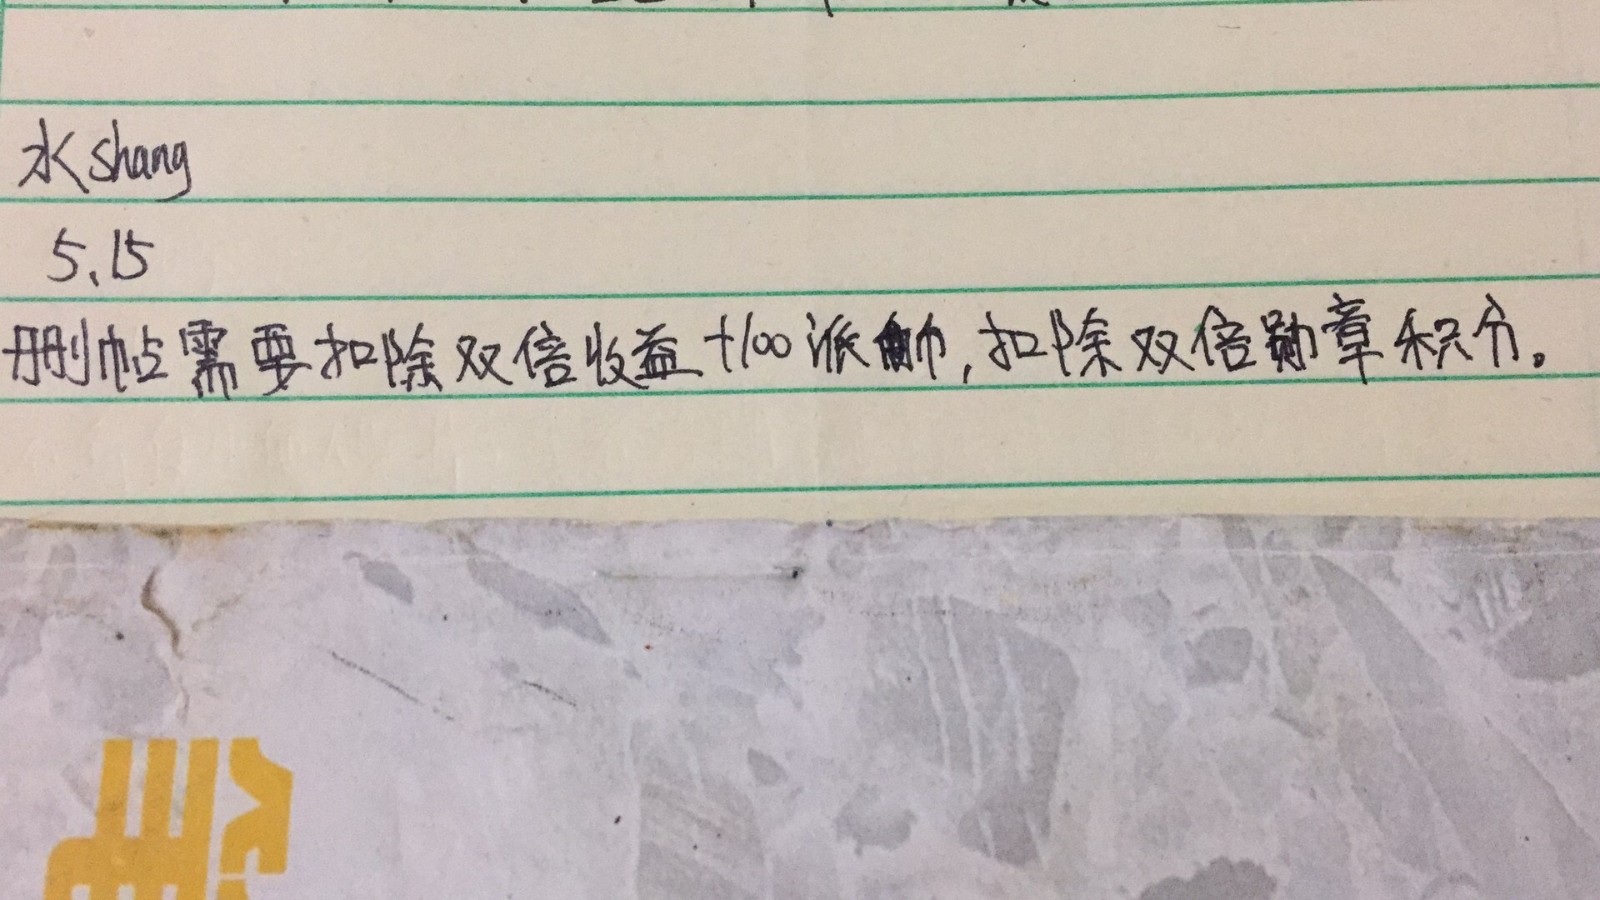 水shang
5.15
删帖需要扣除双倍收益+100派币,扣除双倍勋章积分。